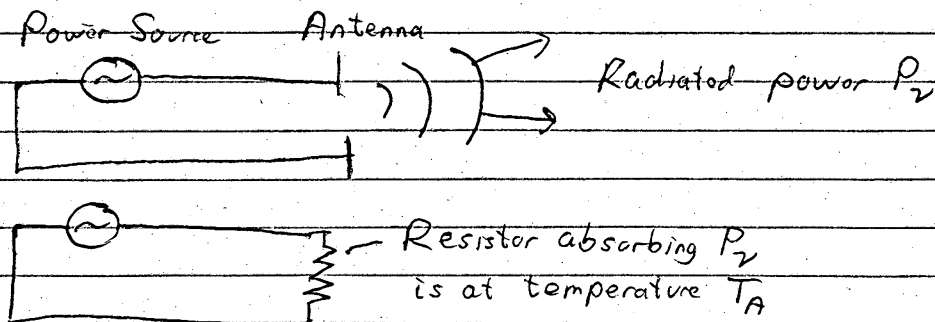 Power Source Antenna
Radiated power P_ν
Resistor absorbing P_ν
is at temperature T_A